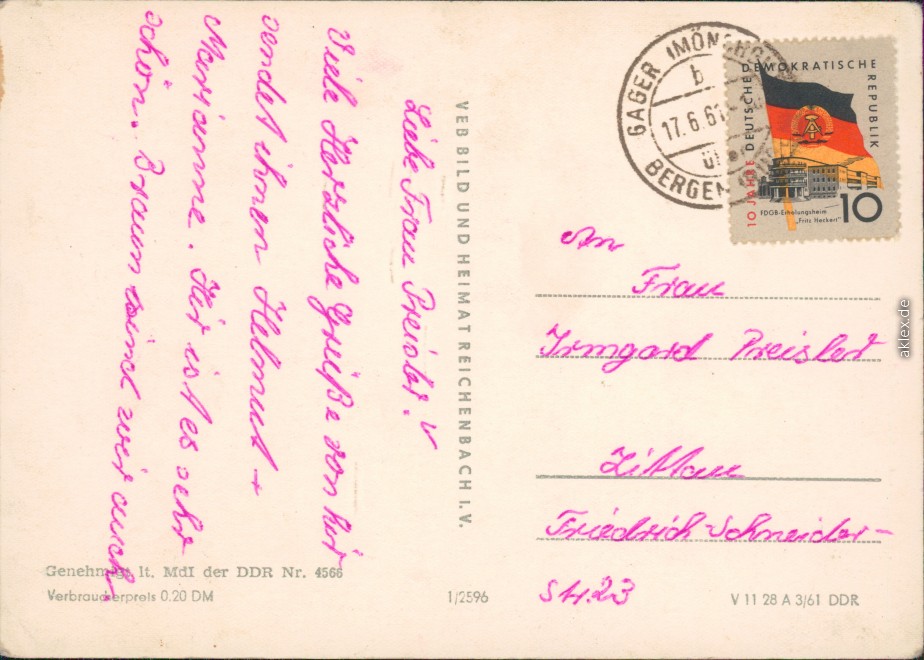 Liebe Frau Preisler!
Viele Herzliche Grüße von hir
sendet ihnen Helmut +
Marianne. Hir ist es sehr
schön. Braun sind wir auch.
VEB BILD UND HEIMAT REICHENBACH I. V.
GAGER (MÖNCHG
b
17.6.61
üb
BERGEN
10 JAHRE DEUTSCHE DEMOKRATISCHE REPUBLIK
FDGB-Erholungsheim
„Fritz Heckert"
10
An
Frau
Irmgard Preisler
Zittau
Friedrich-Schneider-
Str. 23
Genehmigt lt. MdI der DDR Nr. 4566
Verbraucherpreis 0,20 DM
1/2596
V 11 28 A 3/61 DDR
aklex.de